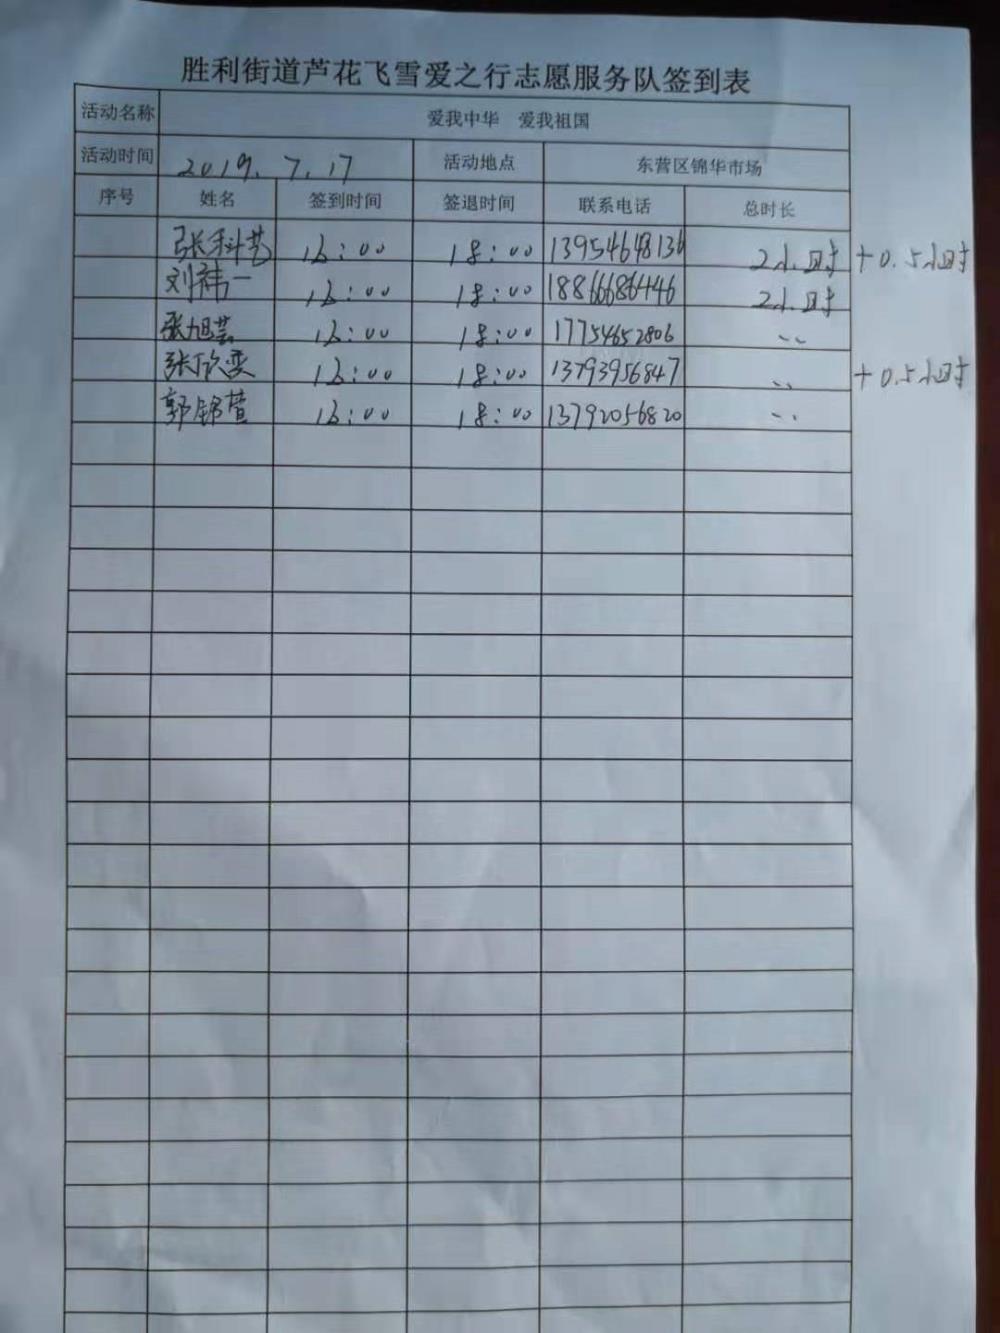 胜利街道芦花飞雪爱之行志愿服务队签到表
活动名称 爱我中华 爱我祖国
活动时间 2019.7.17 活动地点 东营区锦华市场
序号 姓名 签到时间 签退时间 联系电话 总时长
张科艺 16:00 18:00 13954648136 2小时 +0.5小时
刘祎一 16:00 18:00 18866686446 2小时
张旭芸 16:00 18:00 17754652806 、、
张欣奕 16:00 18:00 13793956847 、、 +0.5小时
郭锦萱 16:00 18:00 13792056820 、、